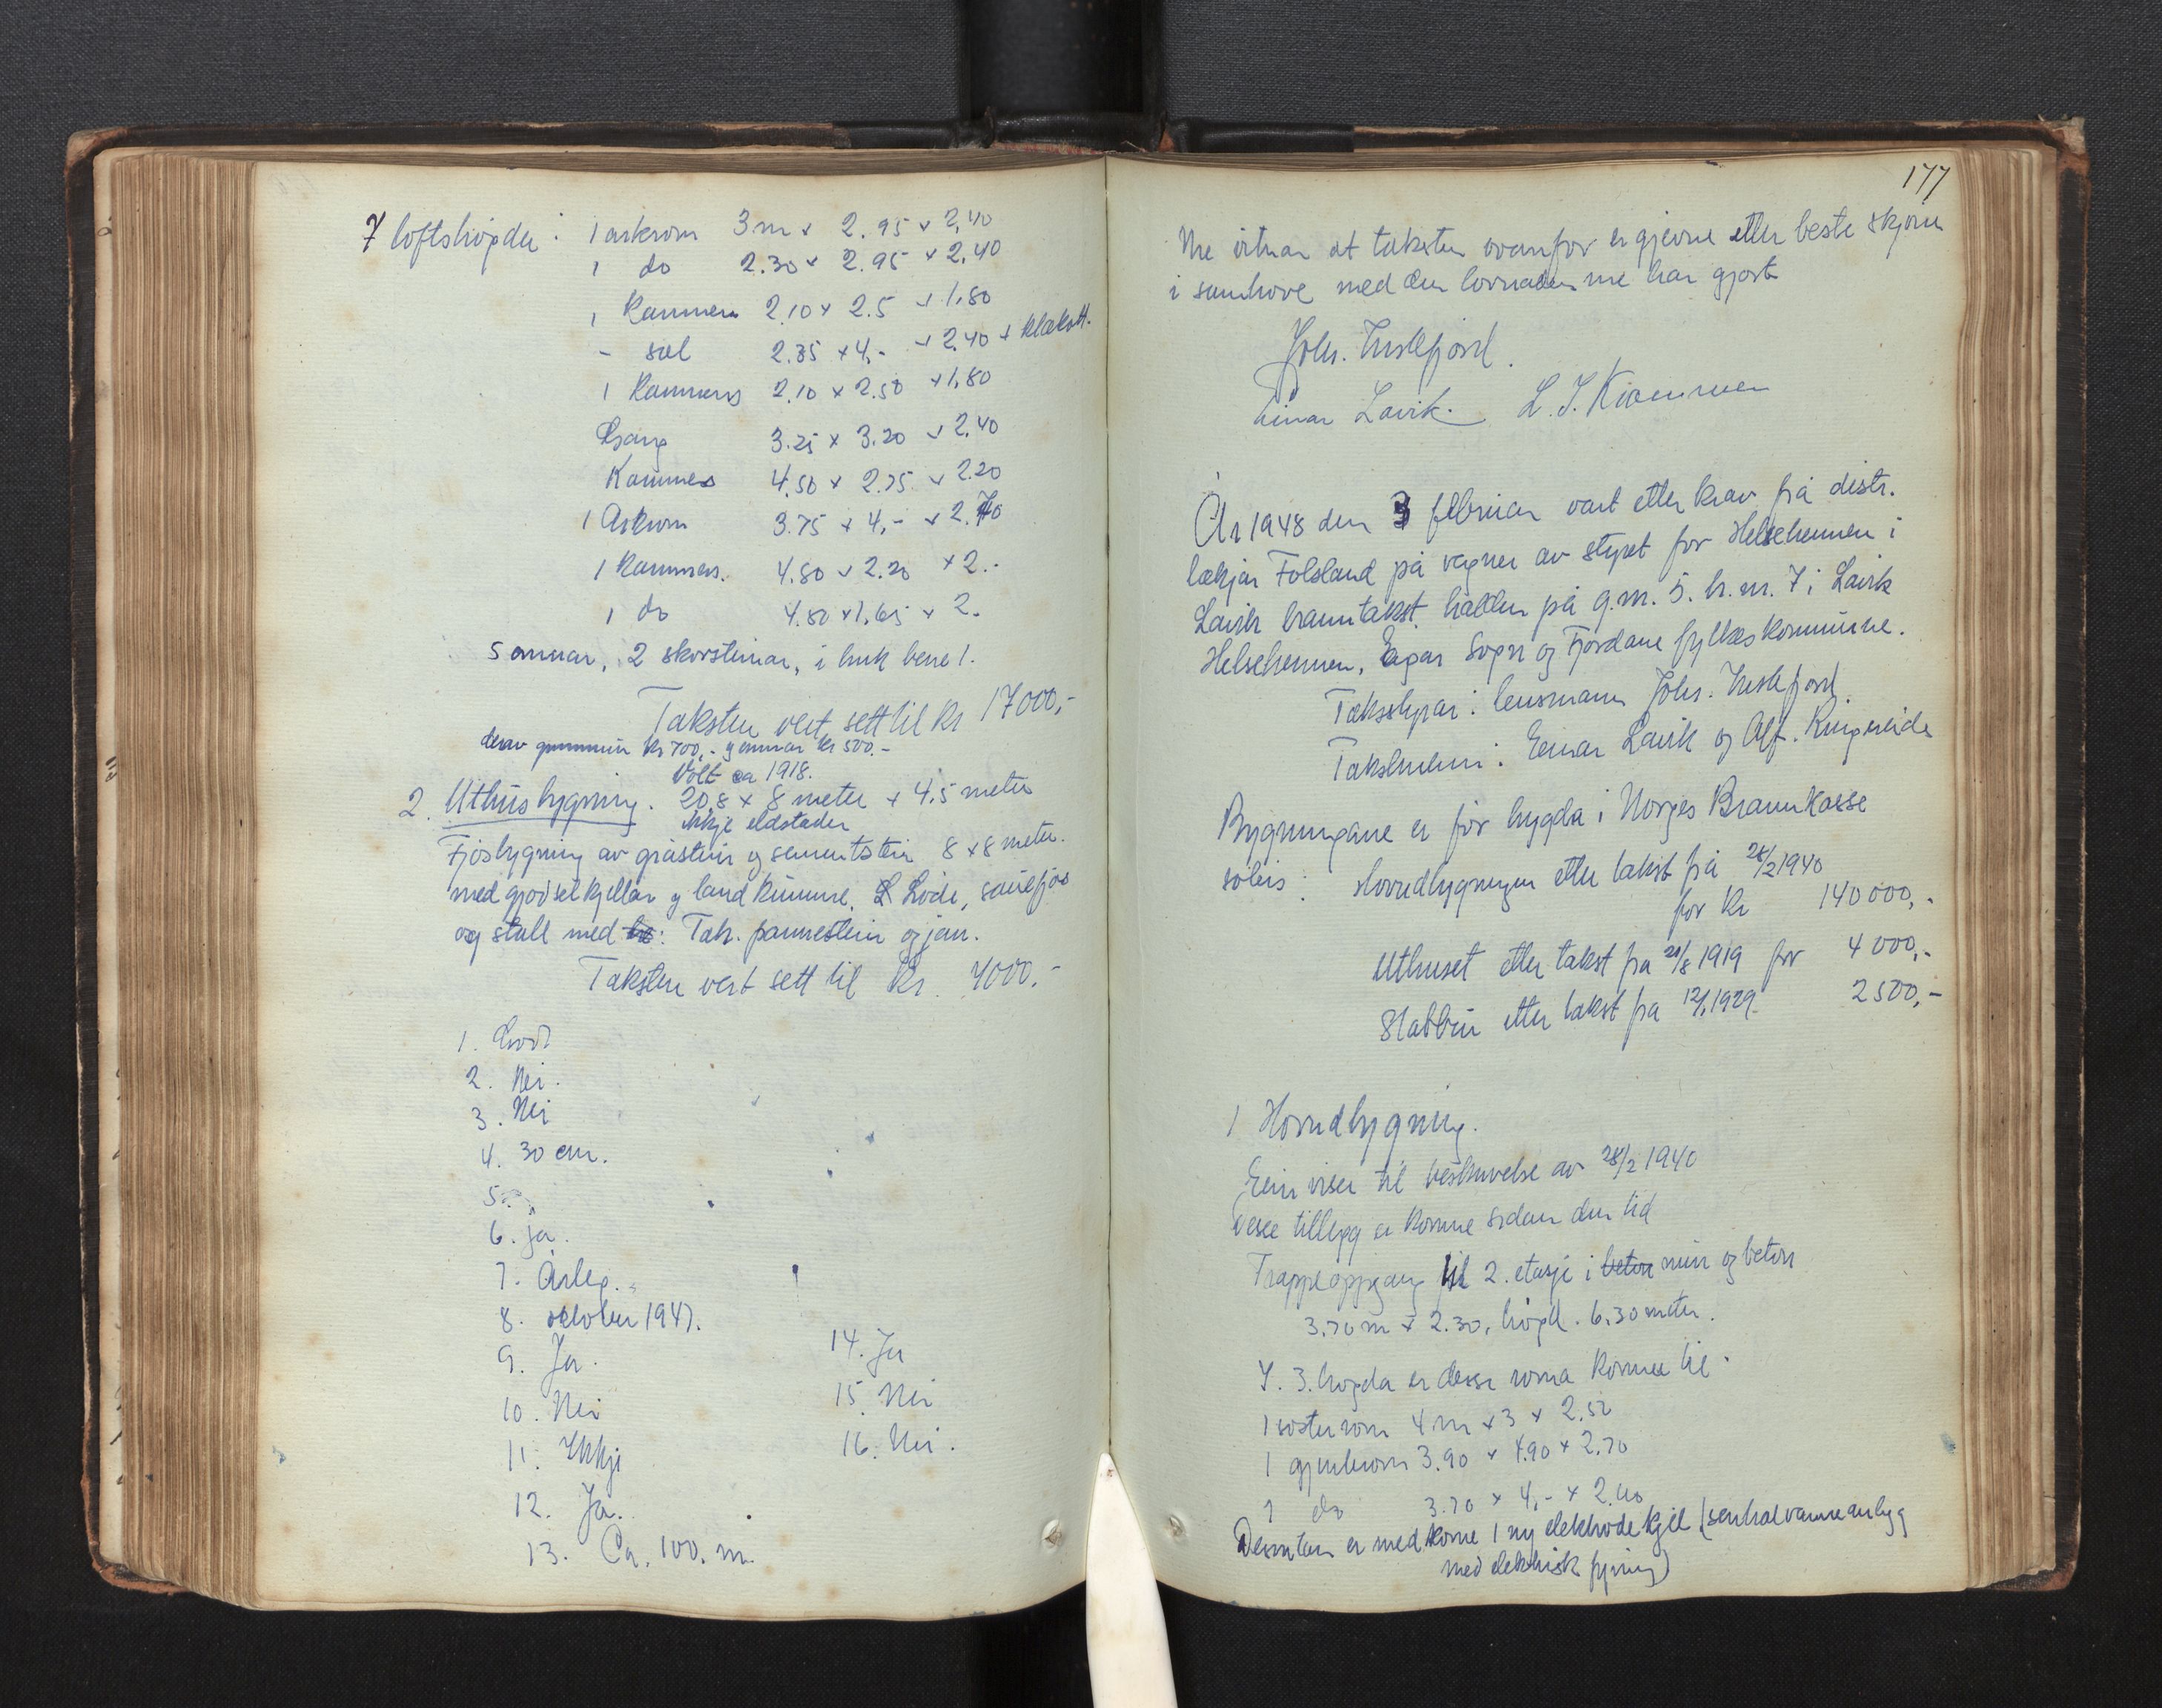 7 loftshøgder: 1 arkrom 3 m x 2.95 x 2,40
1 do 2.30 x 2.95 x 2.40
1 Kammers 2.10 x 2.5 x 1.80
- sal 2.35 x 4,- x 2.40 + klekott.
1 Kammers 2.10 x 2.50 x 1.80
Gang 3.25 x 3.20 x 2.40
Kammes 4.50 x 2.75 x 2.20
1 Arkrom 3.75 x 4,- x 2.40
1 Kammers. 4.80 x 2.20 x 2.-
1 do 4.80 x 1.65 x 2.
5 omnar, 2 skorsteinar, i bruk bene 1.
Taksten vert sett til kr 17000,-
derav grunnmur kr 700,- og omnar kr 500.-
Volt ca 1918.
2. Uthusbygning. 20,8 x 8 meter x 4,5 meter
ikkje eldstader
Fjøsbygning av gråstein og sementstein 8 x 8 meter.
med gjødselkjellar og landkumme. L Løde, sauefjøs
og stall med tre: Tak. pannestein og jarn.
Taksten vert sett til kr. 4000,-
1. God
2. Nei.
3. Nei
4. 30 cm.
5.
6. ja.
7. Årleg.
8. oktober 1947.
9. Ja.
10. Nei
11. Ikkje
12. Ja.
13. Ca. 100. m.
14. Ja
15. Nei
16. Nei.
177
Me vitnar at taksten ovanfor er gjevne etter beste skjøn
i samhøve med den lovnaden me har gjort
Johs. Tuskfjord.
Einar Lavik. L. J. Kvammen
År 1948 den 3 februar vart etter krav frå distr.
lækjar Folsland på vegner av styret for Helseheimen i
Lavik branntakst halden på g.nr. 5. br.nr. 7 i Lavik
Helseheimen, Eigar Sogn og Fjordane fylkeskommune.
Takststyrar: lensmann Johs. Tuskfjord.
Takstmenn: Einar Lavik og Alf. Ringereide
Bygningane er før trygda i Norges Brannkasse
søleis: Hovudbygningen etter takst frå 28/2 1940
for kr 140000,-
Uthuset etter takst fra 21/8 1919 for 4000,-
Stabbur etter takst fra 12/1 1929 2500,-
1 Hovudbygning.
Ein viser til beskrivelse av 28/2 1940
Desse tillegg er komne sidan den tid
Trappeoppgang til 2. etasje i beton mur og beton
3.70 m x 2.30, høgd. 6.30 meter.
I 3. høgda er desse roma komne til
1 søsterrom 4 m x 3 x 2.50
1 gjenterom 3.90 x 4.90 x 2.70
1 do 3.70 x 4,- x 2.40
Dessutan er med kome 1 ny elektrodekjel (sentralvarmeanlegg
med elektrisk fyring)